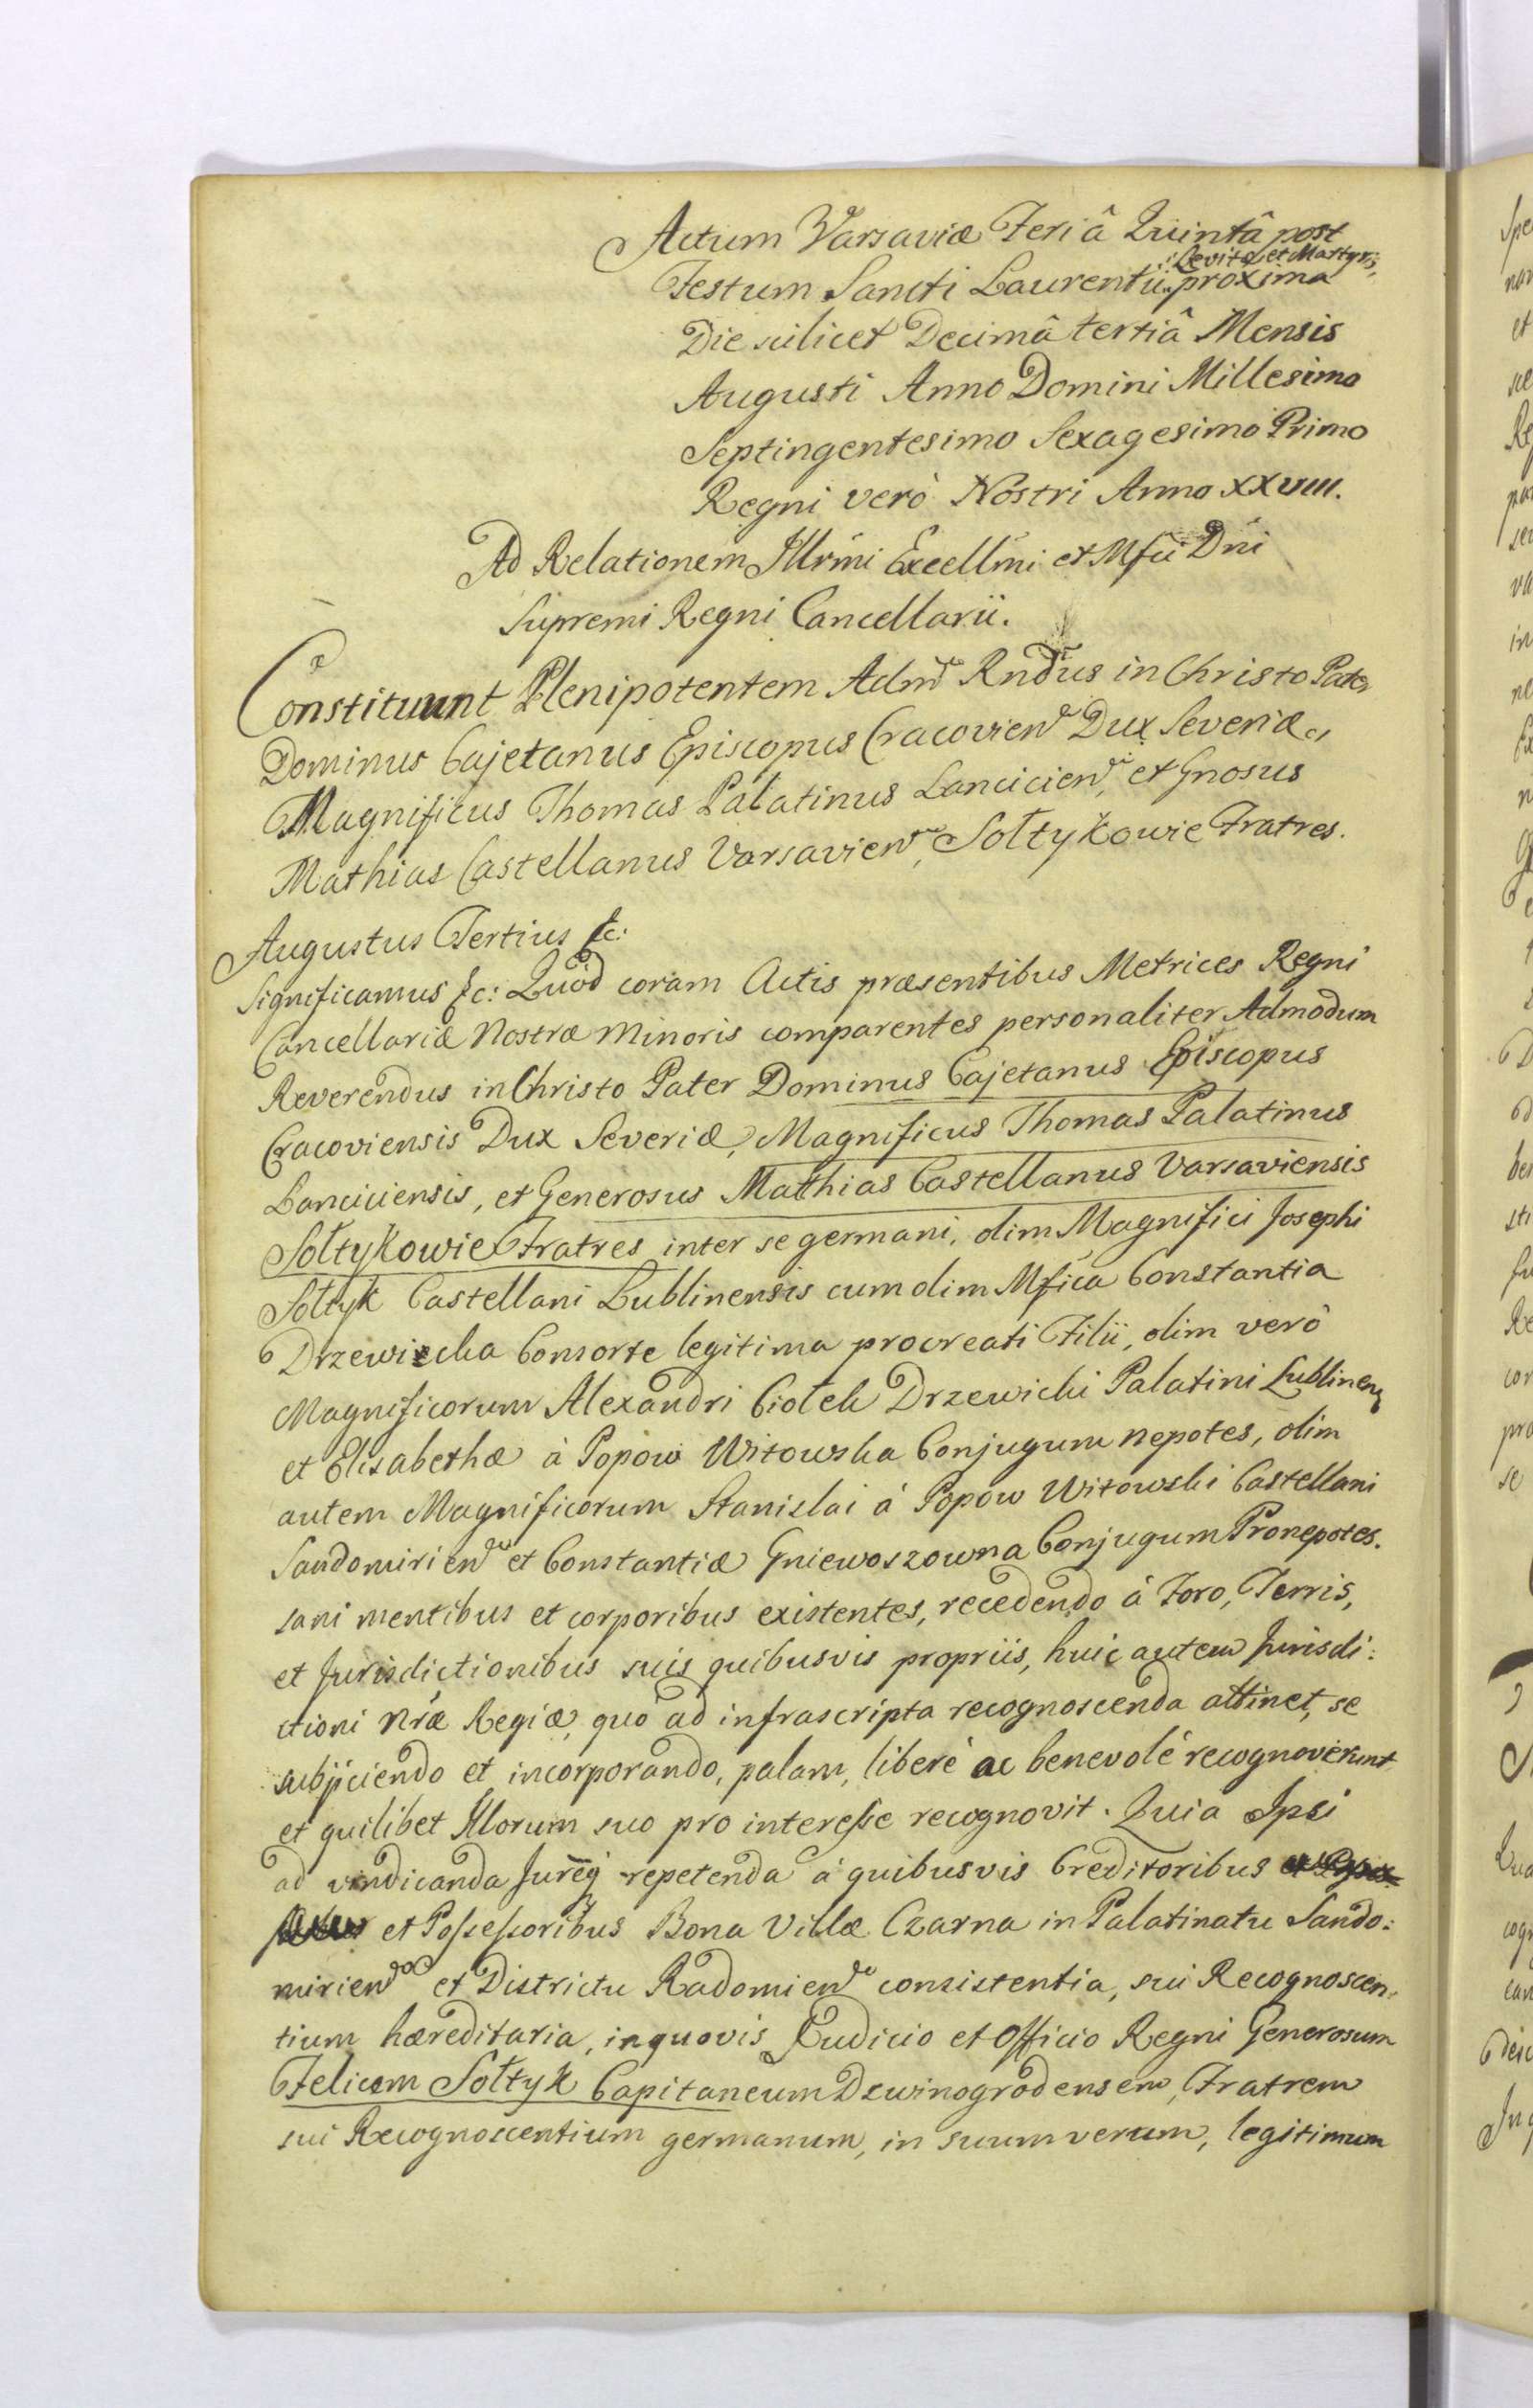 Actum Varsaviæ Feriâ Quintâ post
Festum Sancti Laurentii Levitæ et Martyris proxima
Die scilicet Decimâ tertiâ Mensis
Augusti Anno Domini Millesimo
Septingentesimo Sexagesimo Primo
Regni verò Nostri Anno XXVIII.
Ad Relationem Illrmi Excellmi et Mfci Dni
Supremi Regni Cancellarii.
Constituunt Plenipotentem Adm Rndus in Christo Pater
Dominus Cajetanus Episcopus Cracovien Dux Severiæ,
Magnificus Thomas Palatinus Lancicien, et Gnosus
Mathias Castellanus Varsavien, Sołtykowie Fratres.
Augustus Tertius &c:
Significamus &c: Quod coram Actis præsentibus Metrices Regni
Cancellariæ Nostræ Minoris comparentes personaliter Admodum
Reverendus in Christo Pater Dominus Cajetanus Episcopus
Cracoviensis Dux Severiæ, Magnificus Thomas Palatinus
Lanciciensis, et Generosus Mathias Castellanus Varsaviensis
Sołtykowie Fratres inter se germani, olim Magnifici Josephi
Sołtyk Castellani Lublinensis cum olim Mfica Constantia
Drzewicka Consorte legitima procreati Filii, olim verò
Magnificorum Alexandri Ciołek Drzewicki Palatini Lublinen
et Elisabethæ à Popow Witowska Conjugum nepotes, olim
autem Magnificorum Stanislai à Popow Witowski Castellani
Sandomirien et Constantiæ Gniewoszowna Conjugum Pronepotes.
sani mentibus et corporibus existentes, recedendo à Foro, Terris,
et Jurisdictionibus suis quibusvis propriis, huic autem Jurisdi:
ctioni Nræ Regiæ, quò ad infrascripta recognoscenda attinet, se
subjiciendo et incorporando, palam, liberè ac benevolè recognoverunt
et quilibet Illorum suo pro interesse recognovit. Quia Ipsi
ad vindicanda Jureq repetenda à quibusvis Creditoribus
et Possessoribus Bona Villæ Czarna in Palatinatu Sando:
mirien et Districtu Radomien consistentia, sui Recognoscen:
tium hæreditaria, in quovis Judicio et Officio Regni Generosum
Felicem Sołtyk Capitaneum Dzwinogrodensem, Fratrem
sui Recognoscentium germanum, in suum verum, legitimum